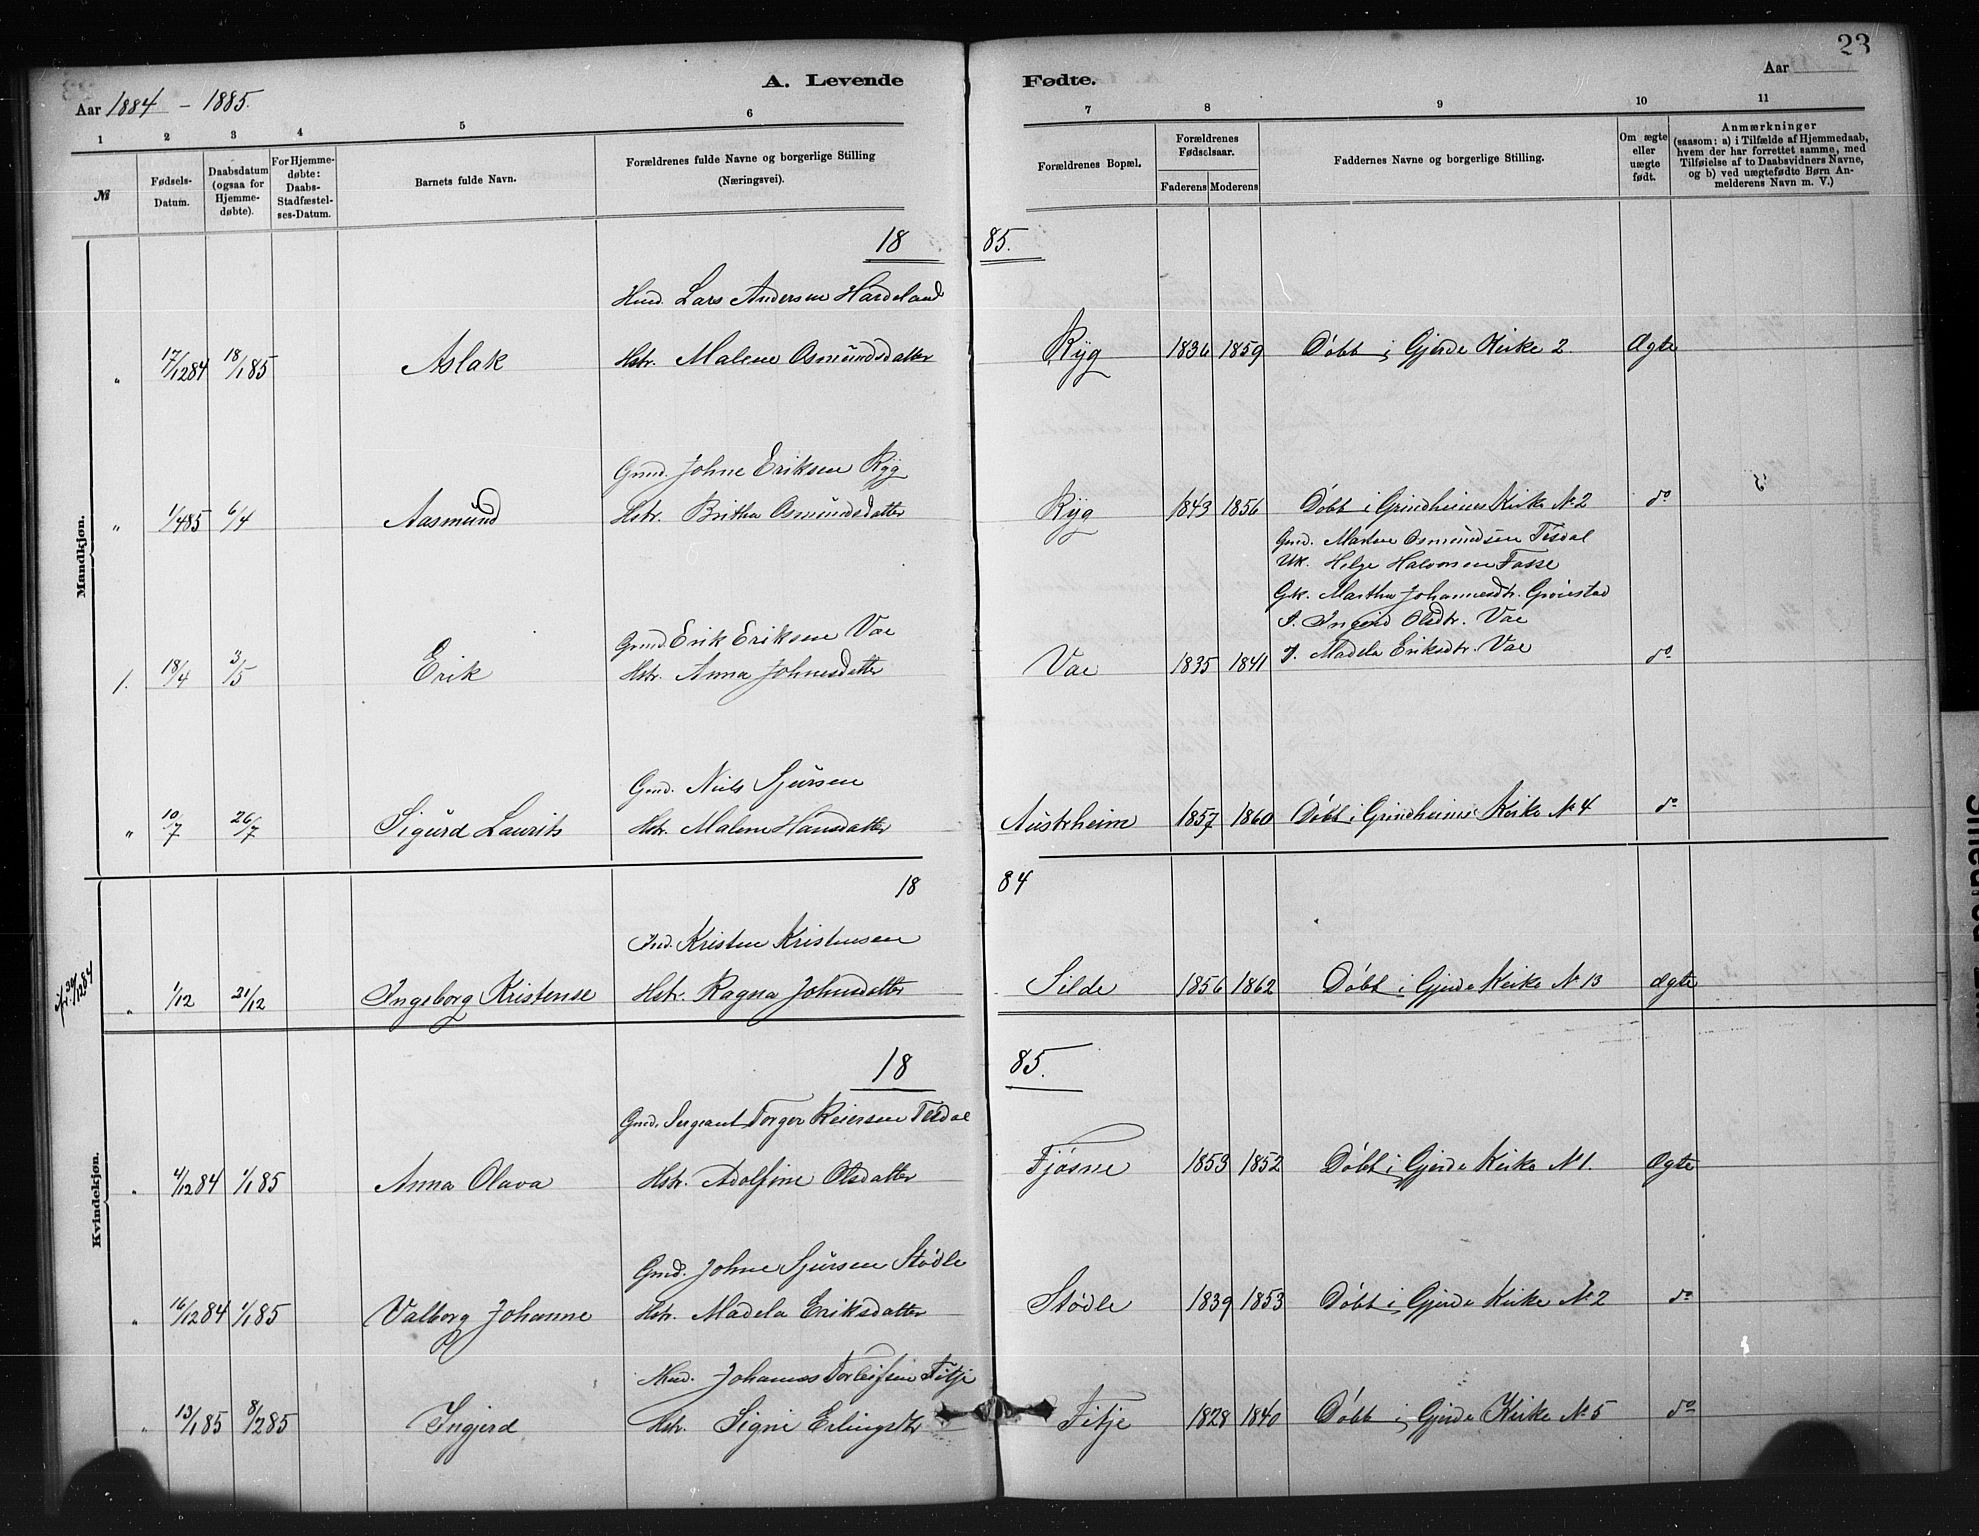 23
A. Levende Fødte.
Aar 1884 - 1885.
Aar
1 2 3 4 5 6 7 8 9 10 11
№
Fødsels-
Datum.
Daabsdatum
(ogsaa for
Hjemme-
døbte).
For Hjemme-
døbte:
Daabs-
Stadfæstel-
ses-Datum.
Barnets fulde Navn.
Forældrenes fulde Navne og borgerlige Stilling
(Næringsvei).
Forældrenes Bopæl.
Forældrenes
Fødselsaar.
Faderens Moderens
Faddernes Navne og borgerlige Stilling.
Om ægte
eller
uægte
født.
Anmærkninger
(saasom: a) i Tilfælde af Hjemmedaab,
hvem der har forrettet samme, med
Tilføielse af to Daabsvidners Navne,
og b) ved uægtefødte Børn An-
melderens Navn m. V.)
Mandkjøn.
18 85.
Hmd. Lars Andersen Hardeland
" 17/12 84 18/1 85 Aslak Hstr. Malene Osmundsdatter Ryg 1836 1859 Døbt i Gjerde Kirke 2 Ægte
Gmd. Johne Eriksen Ryg
" 1/4 85 6/4 Aasmund Hstr. Britha Osmundsdatter Ryg 1843 1856 Døbt i Grindheims Kirke № 2 do
Gmd. Marken Osmundsen Tesdal
Uk. Helge Halvorsen Fosse
Gk. Martha Johannesdtr. Grønstad
P. Ingerid Olsdtr. Vae
Gmd Erik Eriksen Vae
1. 18/4 3/5 Erik Hstr. Anna Johnesdatter Vae 1835 1841 P. Madela Eriksdtr. Vae do
Gmd. Niels Sjursen
" 10/7 26/7 Sigurd Laurits Hstr. Malene Hansdatter Austrheim 1857 1860 Døbt i Grindheims Kirke № 4 do
18 84
Ind. Kristen Kristensen
" 1/12 21/12 Ingeborg Kristense Hstr. Ragna Johnsdatter Silde 1856 1862 Døbt i Gjerde Kirke № 13 ægte
Kvindekjøn.
18 85.
Gmd. Sergeant Torger Reiersen Tesdal
" 4/12 84 1/1 85 Anna Olava Hstr. Adolfine Olsdatter Fjøsne 1853 1852 Døbt i Gjerde Kirke № 1. Ægte
Gmd. Johne Sjursen Stødle
" 16/12 84 1/1 85 Valborg Johanne Hstr. Madela Eriksdatter Stødle 1839 1853 Døbt i Gjerde Kirke № 2 do
Hmd. Johannes Torleifsen Fitje
" 13/1 85 8/2 85 Ingerd Hstr. Signi Erlingsdtr Fitje 1828 1840 Døbt i Gjerde Kirke № 5 do